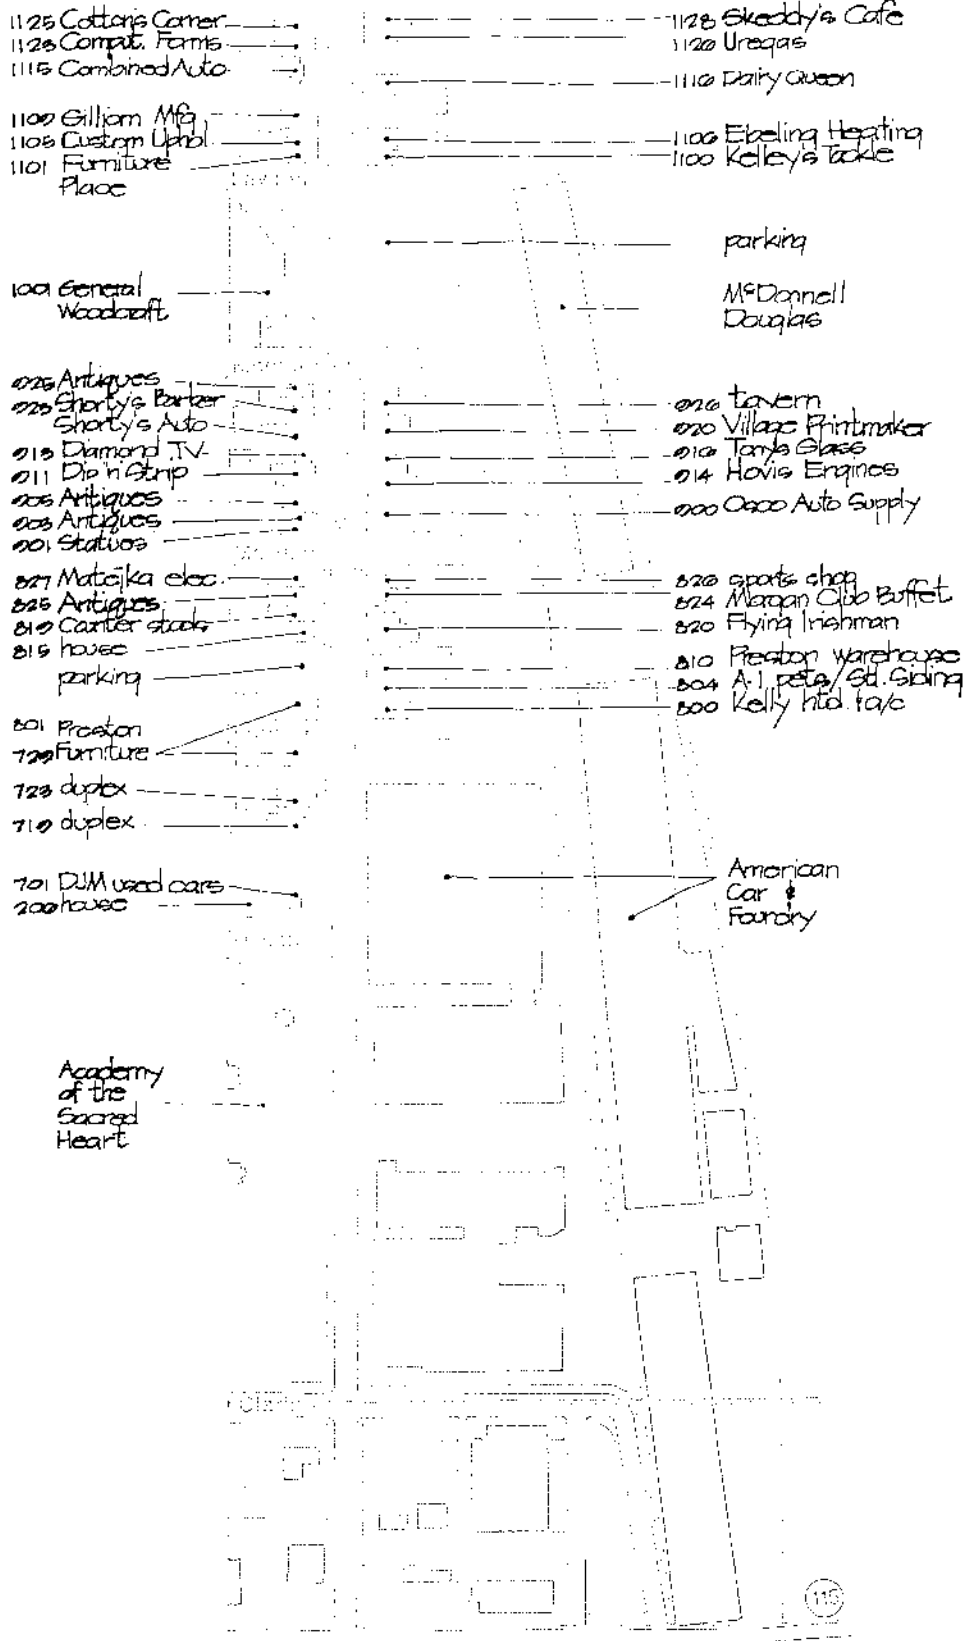 1125 Cotton's Corner
1123 Comput. Forms
1115 Combined Auto
1109 Gilliom Mfg
1105 Custom Uphol.
1101 Furniture
Place
1001 General
Woodcraft
925 Antiques
923 Shorty's Barber
Shorty's Auto
913 Diamond TV
911 Dip 'n Strip
905 Antiques
903 Antiques
901 Statues
827 Matejka elec.
825 Antiques
819
815 house
parking
801 Preston
729 Furniture
723 duplex
719 duplex
701 DJM used cars
200 house
Academy
of the
Sacred
Heart
1128 Skeddy's Cafe
1120 Uregas
1110 Dairy Queen
1106 Ebeling Heating
1100 Kelley's Tackle
parking
McDonnell
Douglas
926 tavern
920 Village Printmaker
916 Tony's Glass
914 Hovis Engines
900 Osco Auto Supply
826 sports shop
824 Morgan Club Buffet
820 Flying Irishman
810 Preston warehouse
804 A-1 pets/Std. Siding
800 Kelly htd. & a/c
American
Car &
Foundry
115